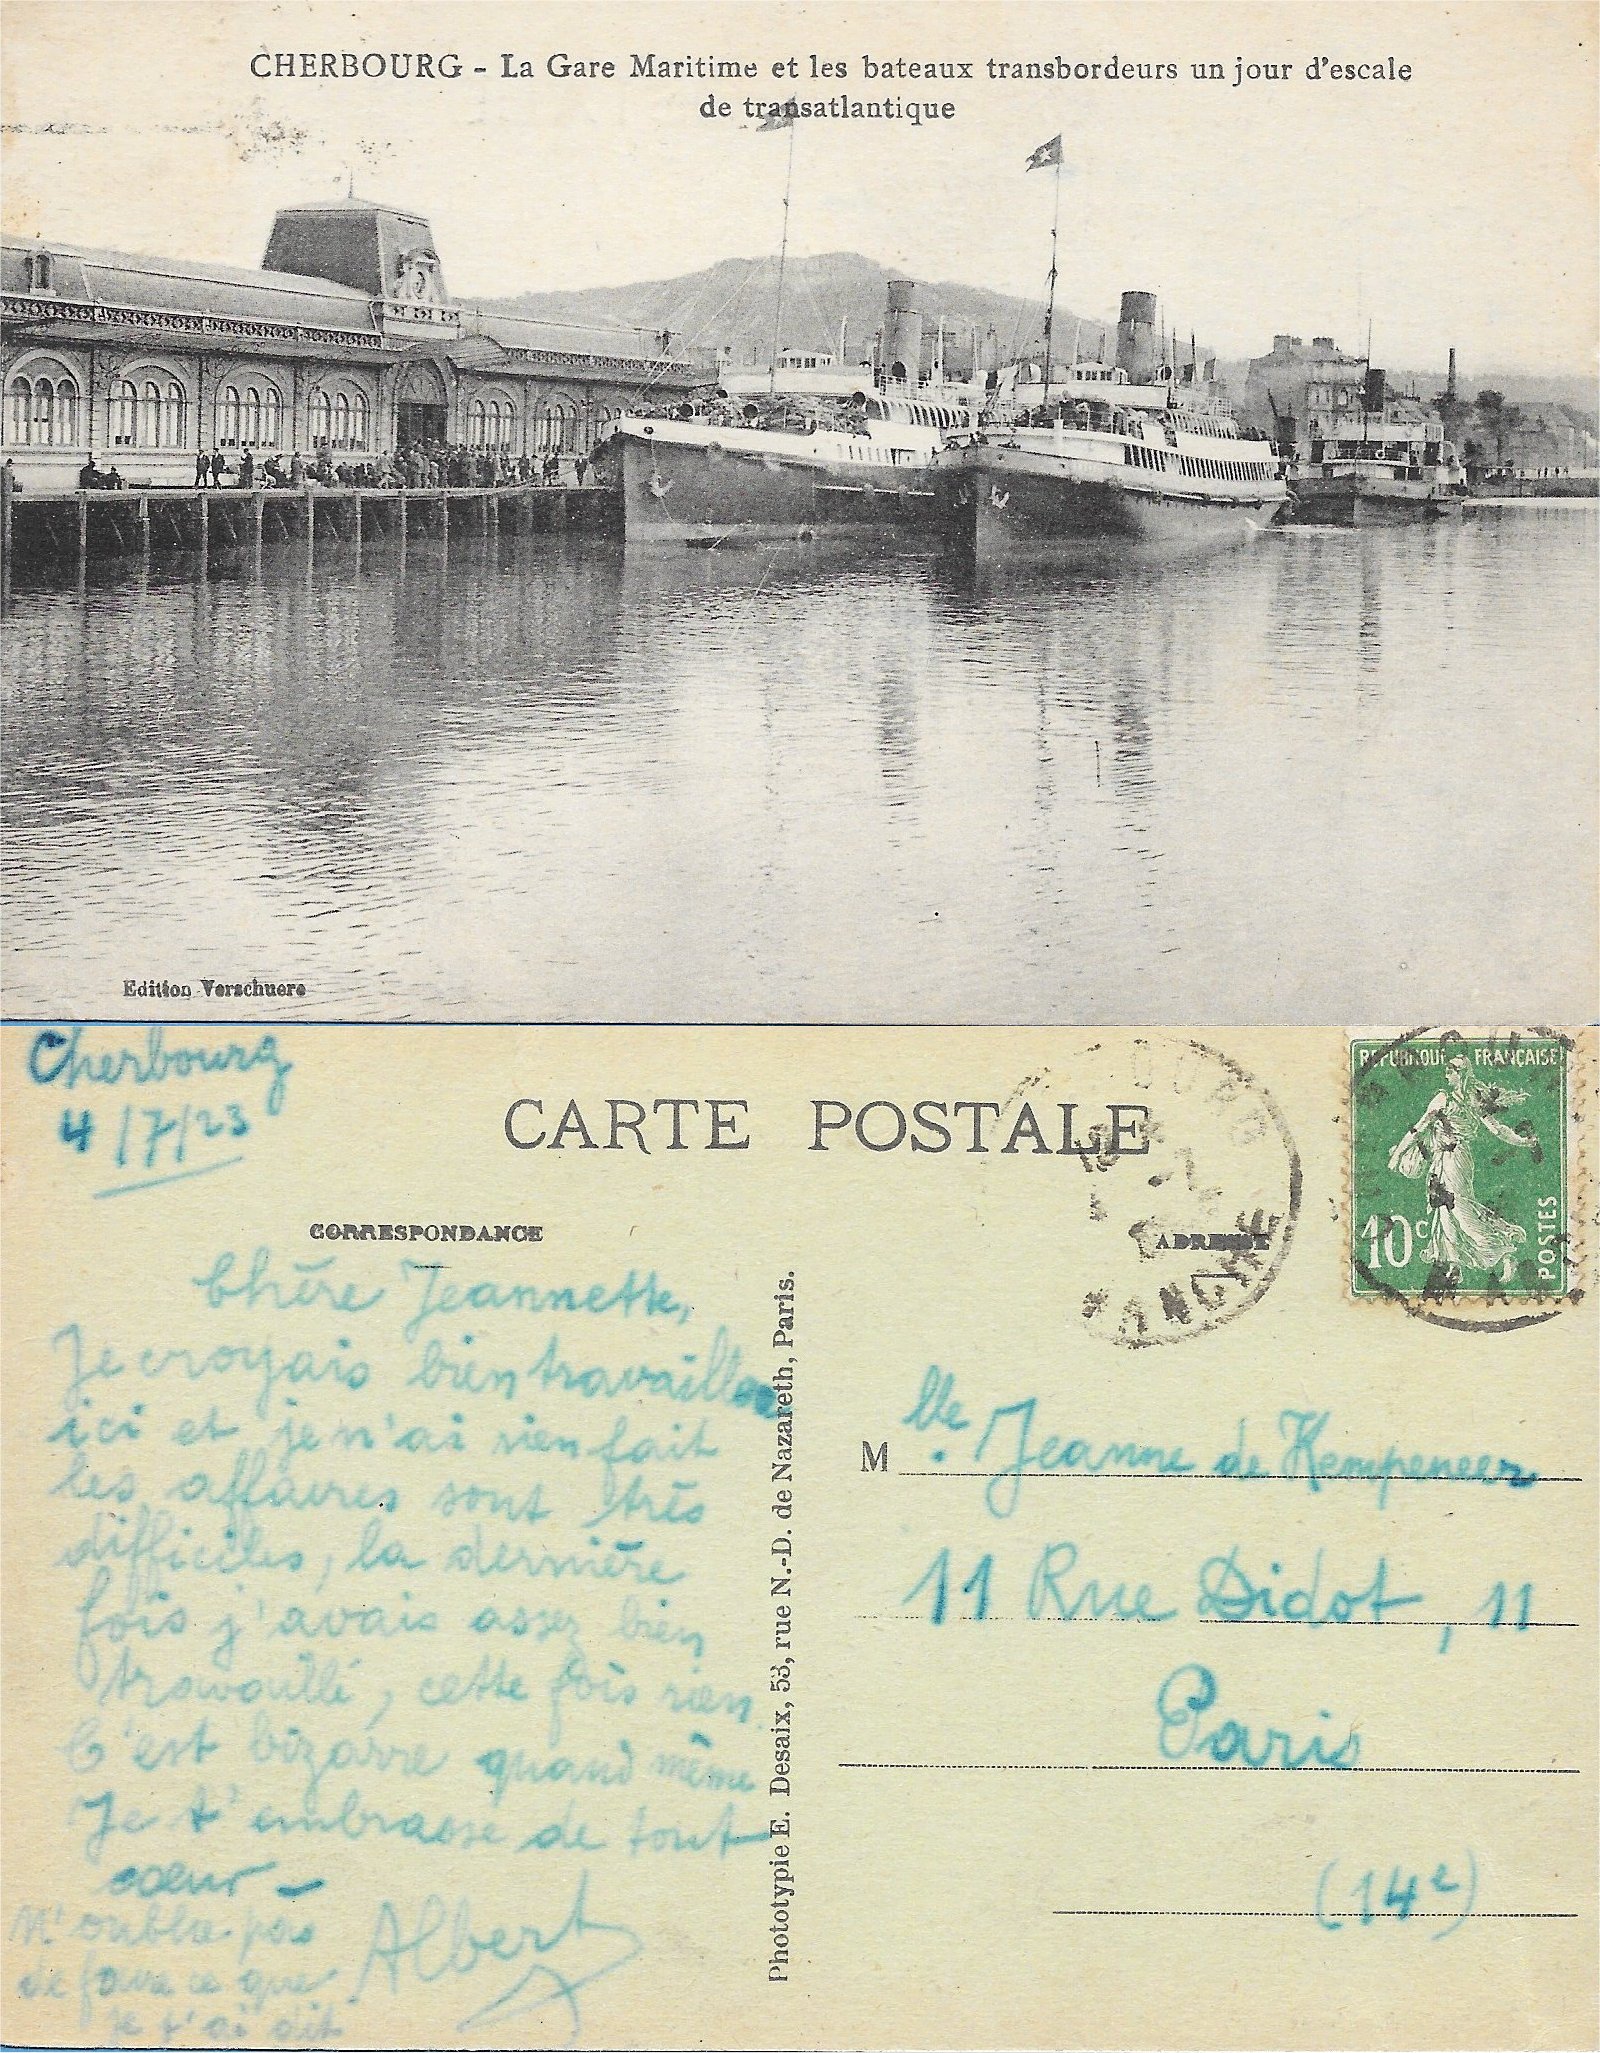 CHERBOURG - La Gare Maritime et les bateaux transbordeurs un jour d'escale
de transatlantique
Edition Verschuere
Cherbourg
4/7/23
CARTE POSTALE
CORRESPONDANCE
ADRESSE
RÉPUBLIQUE FRANÇAISE
10c
POSTES
MANCHE
Chère Jeannette,
Je croyais bien travailler
ici et je n'ai rien fait
les affaires sont très
difficiles, la dernière
fois j'avais assez bien
travaillé, cette fois rien
C'est bizarre quand même
Je t'embrasse de tout
cœur -
Albert
N'oublie pas
de faire ce que
je t'ai dit
Phototypie E. Desaix, 53, rue N.-D. de Nazareth, Paris.
M lle Jeanne de Kempeneer
11 Rue Didot, 11
Paris
(14e)